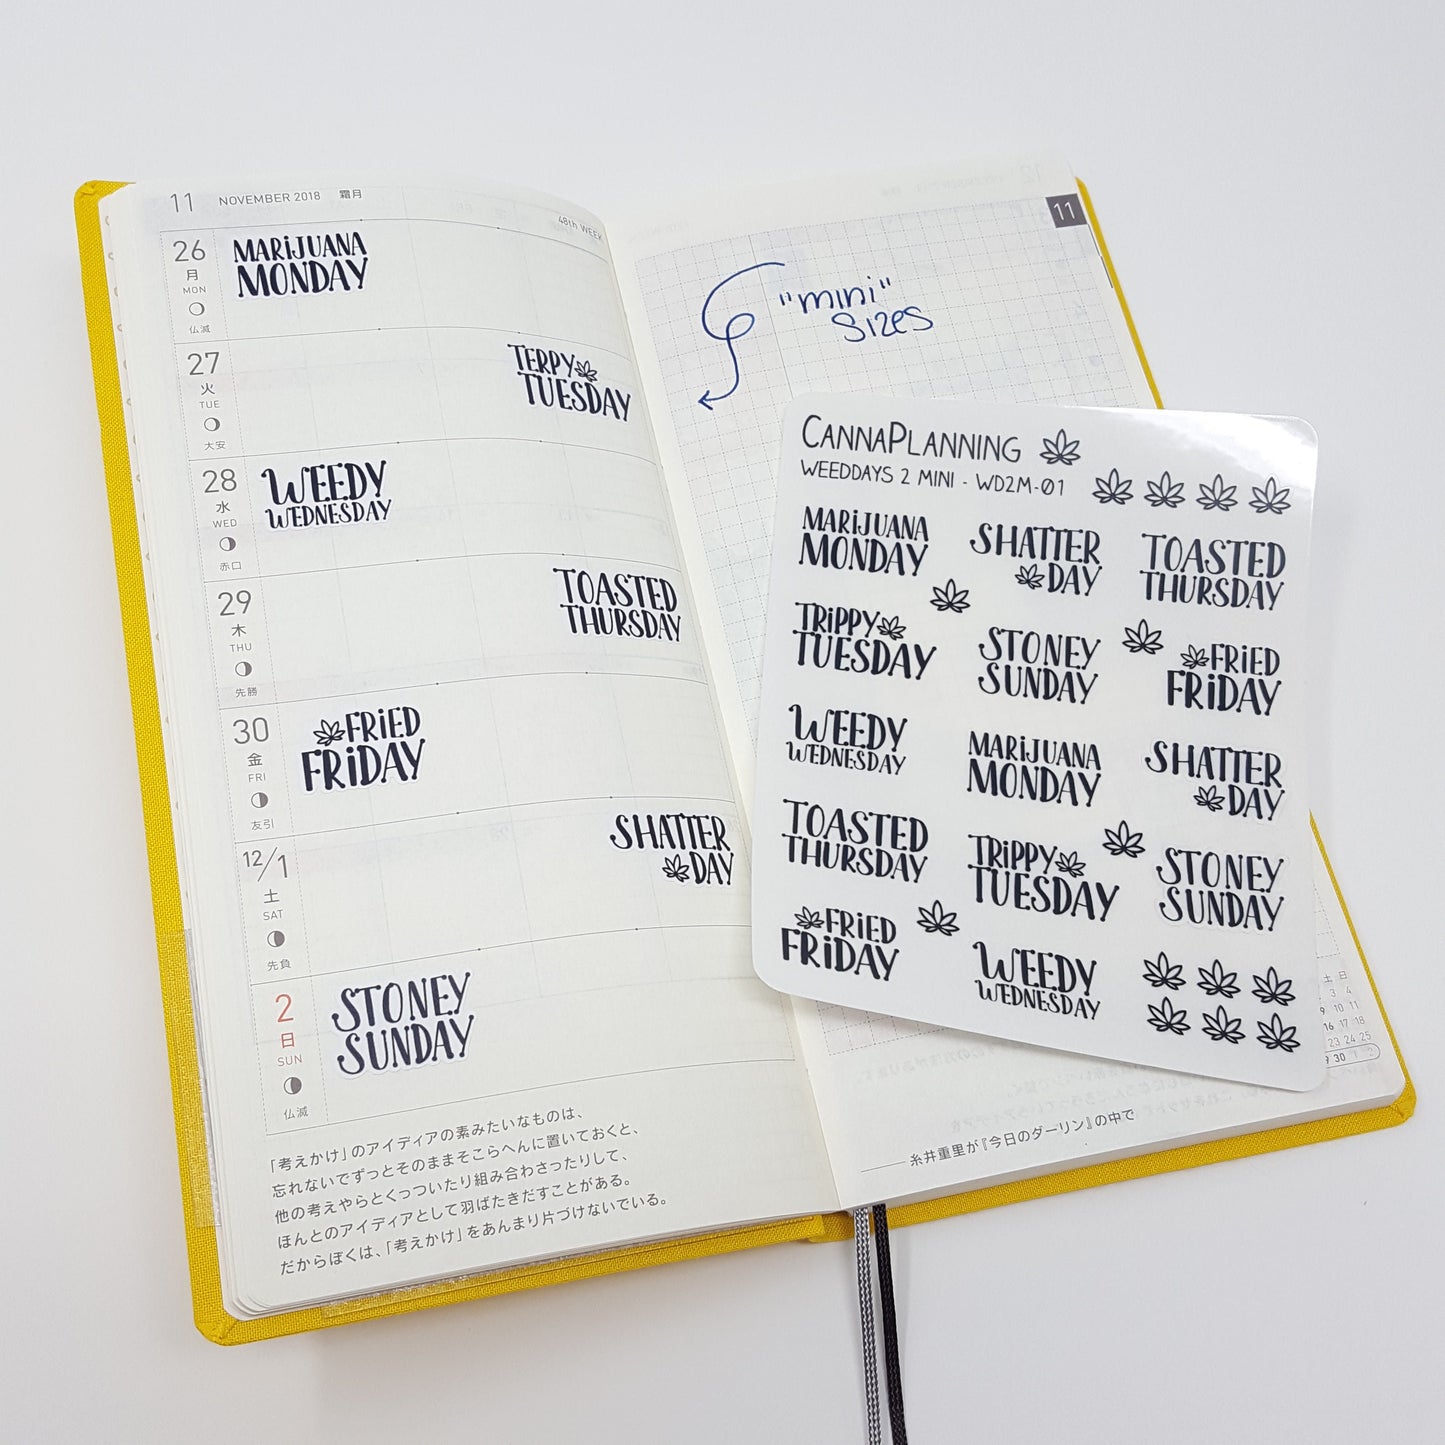 11 NOVEMBER 2018 霜月
48th WEEK
26
月
MON
仏滅
MARIJUANA
MONDAY
27
火
TUE
大安
TERPY
TUESDAY
28
水
WED
赤口
WEEDY
WEDNESDAY
29
木
THU
先勝
TOASTED
THURSDAY
30
金
FRI
友引
FRIED
FRIDAY
12/1
土
SAT
先負
SHATTER
DAY
2
日
SUN
仏滅
STONEY
SUNDAY
「考えかけ」のアイディアの素みたいなものは、
忘れないでずっとそのままそこらへんに置いておくと、
他の考えやらとくっついたり組み合わさったりして、
ほんとのアイディアとして羽ばたきだすことがある。
だからぼくは、「考えかけ」をあんまり片づけないでいる。
11
"mini"
sizes
CANNAPLANNING
WEEDDAYS 2 MINI - WD2M-01
MARIJUANA
MONDAY
SHATTER
DAY
TOASTED
THURSDAY
TRIPPY
TUESDAY
STONEY
SUNDAY
FRIED
FRIDAY
WEEDY
WEDNESDAY
MARIJUANA
MONDAY
SHATTER
DAY
TOASTED
THURSDAY
TRIPPY
TUESDAY
STONEY
SUNDAY
FRIED
FRIDAY
WEEDY
WEDNESDAY
土 日
3 4
10 11
16 17 18
23 24 25
30 1 2
糸井重里が『今日のダーリン』の中で